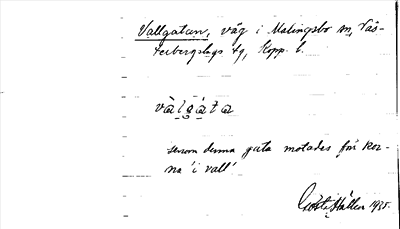 Vallgatan, väg i Malingsbo sn, Väs-
terbergslags tg, Kopp. l.
và̀lgáta
genom denna gata motades för kor-
na 'i vall'
Gösta Hallén 1935.